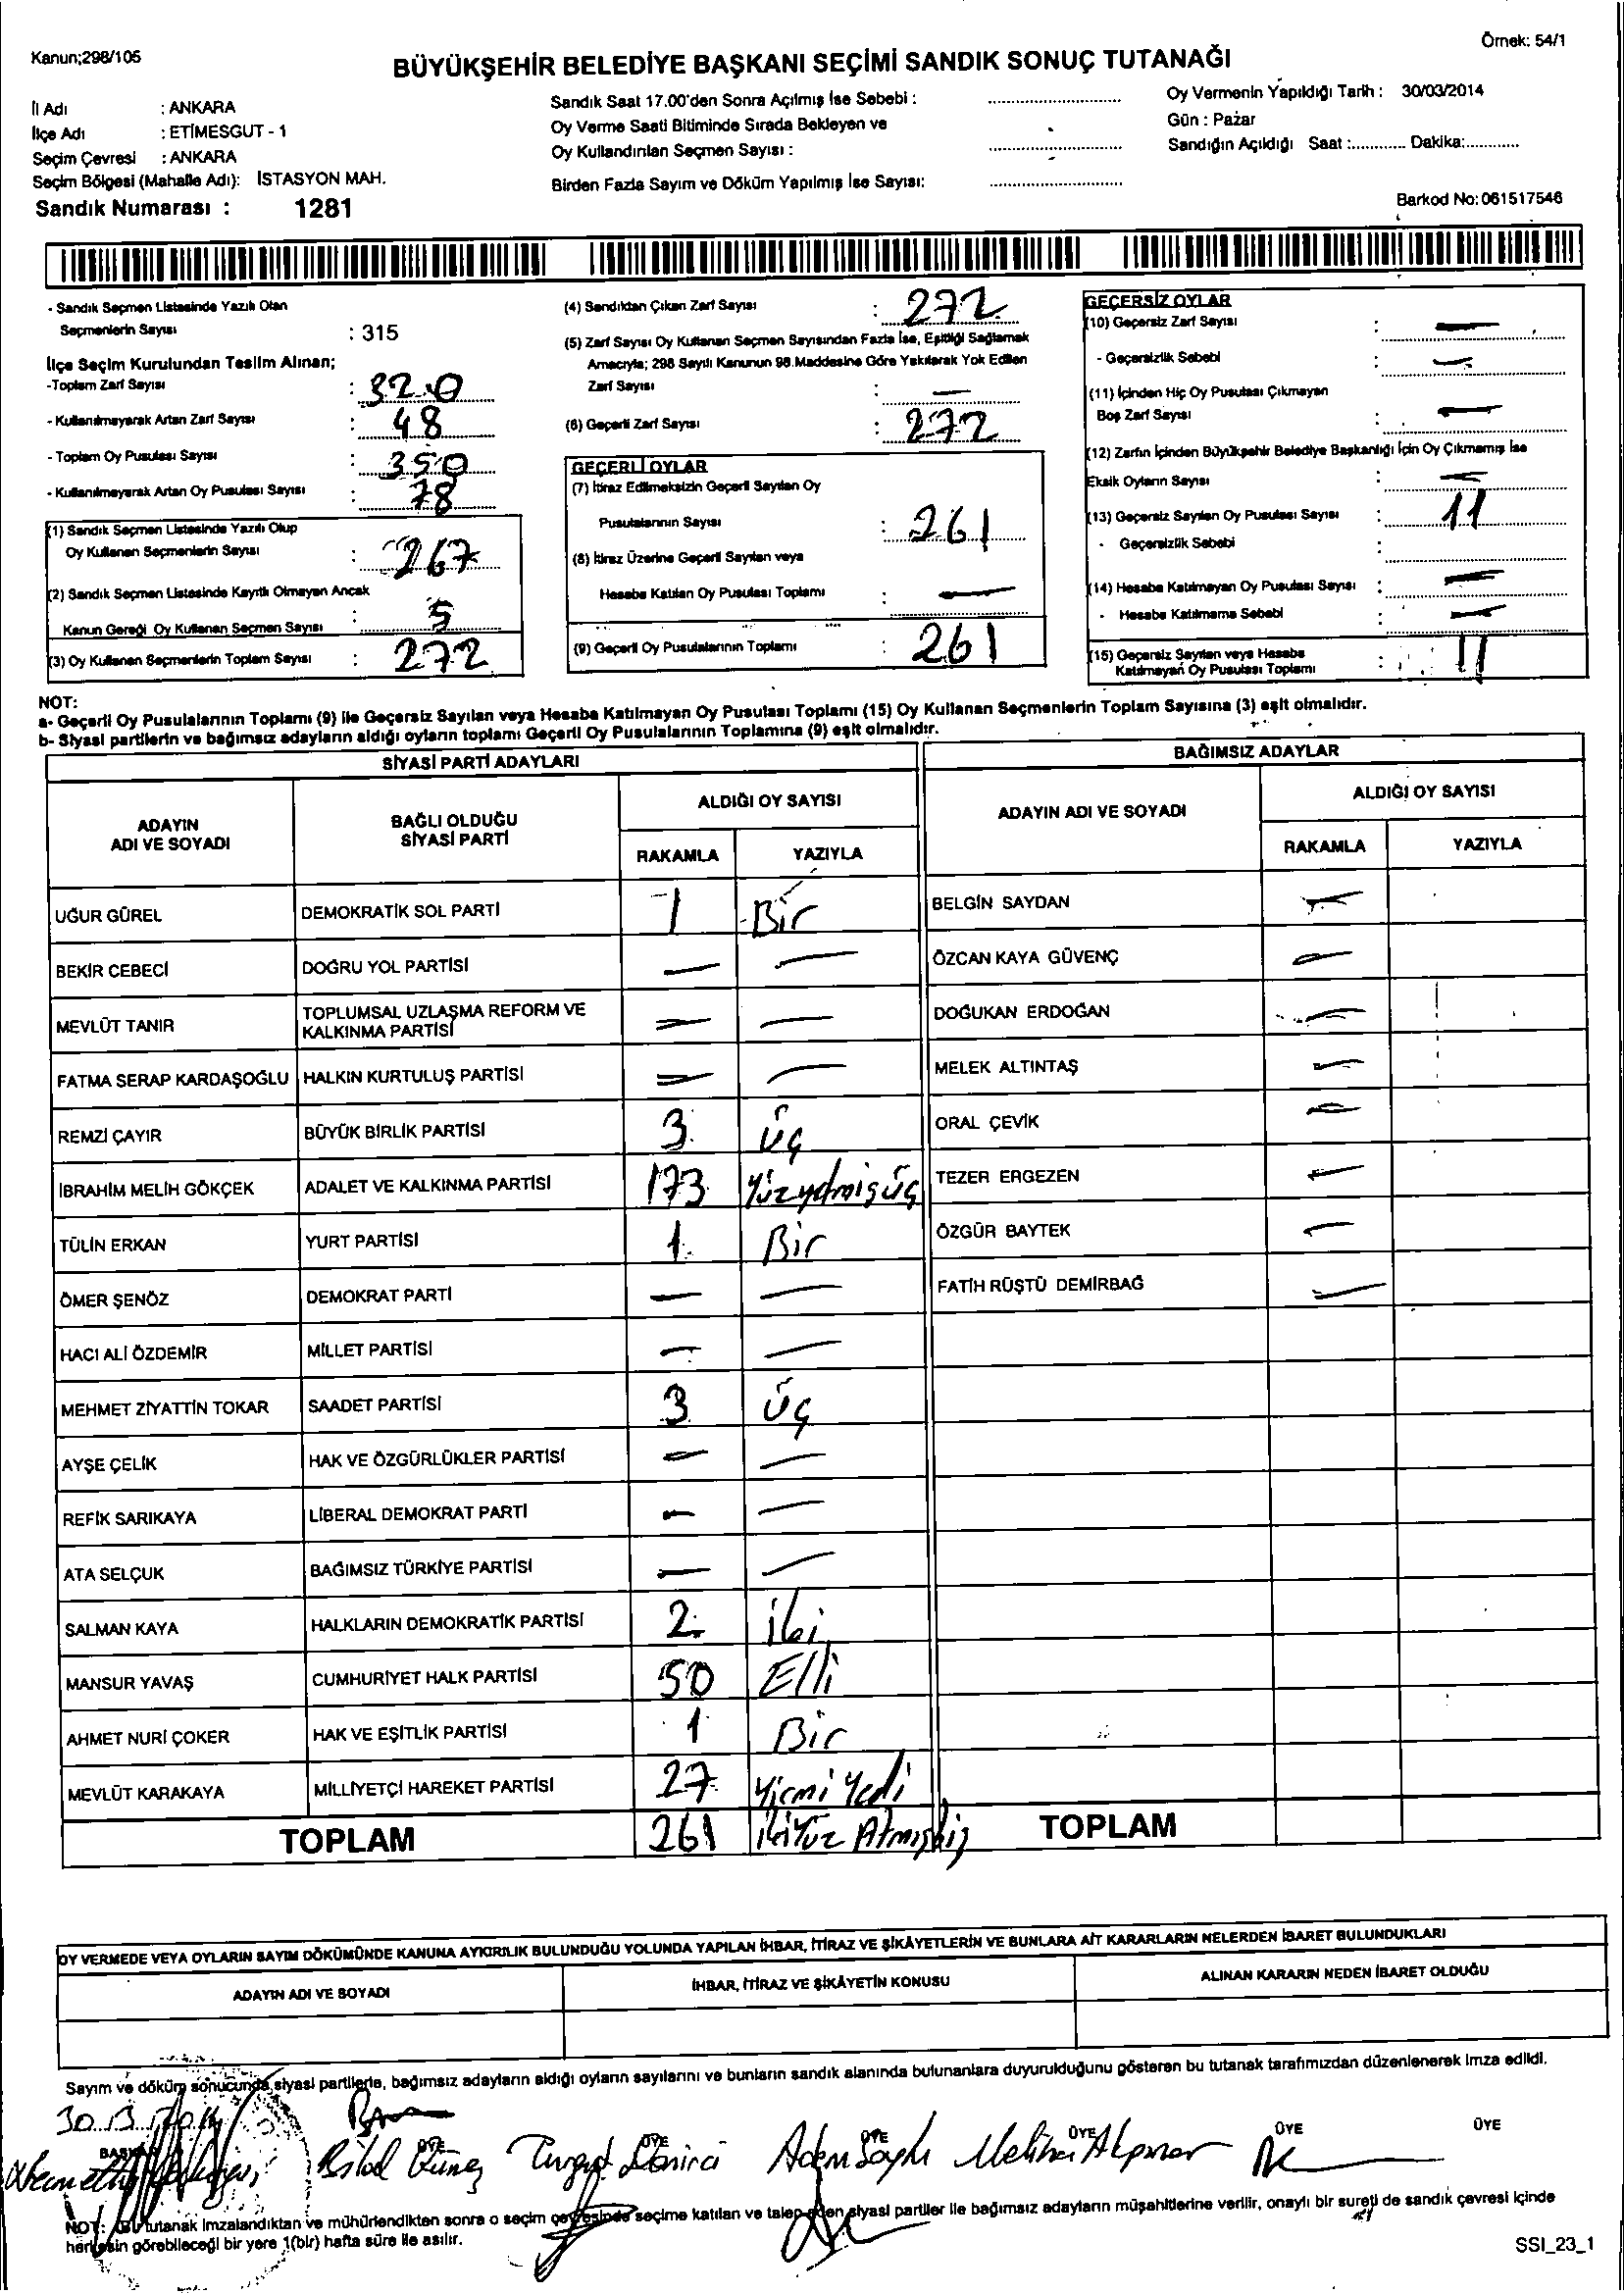 Kanun;298/105
Örnek: 54/1
BÜYÜKŞEHİR BELEDİYE BAŞKANI SEÇİMİ SANDIK SONUÇ TUTANAĞI
İl Adı : ANKARA
İlçe Adı : ETİMESGUT - 1
Seçim Çevresi : ANKARA
Seçim Bölgesi (Mahalle Adı): İSTASYON MAH.
Sandık Numarası : 1281
Sandık Saat 17.00'den Sonra Açılmış İse Sebebi :
Oy Verme Saati Bitiminde Sırada Bekleyen ve
Oy Kullandırılan Seçmen Sayısı :
Birden Fazla Sayım ve Döküm Yapılmış İse Sayısı:
Oy Vermenin Yapıldığı Tarih : 30/03/2014
Gün : Pazar
Sandığın Açıldığı Saat :............ Dakika:............
Barkod No: 061517546
- Sandık Seçmen Listesinde Yazılı Olan
Seçmenlerin Sayısı : 315
İlçe Seçim Kurulundan Teslim Alınan;
-Toplam Zarf Sayısı : 320
- Kullanılmayarak Artan Zarf Sayısı : 48
- Toplam Oy Pusulası Sayısı : 350
- Kullanılmayarak Artan Oy Pusulası Sayısı : 78
(1) Sandık Seçmen Listesinde Yazılı Olup
Oy Kullanan Seçmenlerin Sayısı : 267
(2) Sandık Seçmen Listesinde Kayıtlı Olmayan Ancak
Kanun Gereği Oy Kullanan Seçmen Sayısı : 5
(3) Oy Kullanan Seçmenlerin Toplam Sayısı : 272
(4) Sandıktan Çıkan Zarf Sayısı : 272
(5) Zarf Sayısı Oy Kullanan Seçmen Sayısından Fazla İse, Eşitliği Sağlamak
Amacıyla; 298 Sayılı Kanunun 98.Maddesine Göre Yakılarak Yok Edilen
Zarf Sayısı : —
(6) Geçerli Zarf Sayısı : 272
GEÇERLİ OYLAR
(7) İtiraz Edilmeksizin Geçerli Sayılan Oy
Pusulalarının Sayısı : 261
(8) İtiraz Üzerine Geçerli Sayılan veya
Hesaba Katılan Oy Pusulası Toplamı : —
(9) Geçerli Oy Pusulalarının Toplamı : 261
GEÇERSİZ OYLAR
(10) Geçersiz Zarf Sayısı : —
- Geçersizlik Sebebi : —
(11) İçinden Hiç Oy Pusulası Çıkmayan
Boş Zarf Sayısı : —
(12) Zarfın İçinden Büyükşehir Belediye Başkanlığı İçin Oy Çıkmamış İse
Eksik Oyların Sayısı : —
(13) Geçersiz Sayılan Oy Pusulası Sayısı : 11
- Geçersizlik Sebebi :
(14) Hesaba Katılmayan Oy Pusulası Sayısı : —
- Hesaba Katılmama Sebebi : —
(15) Geçersiz Sayılan veya Hesaba
Katılmayan Oy Pusulası Toplamı : 11
NOT:
a- Geçerli Oy Pusulalarının Toplamı (9) ile Geçersiz Sayılan veya Hesaba Katılmayan Oy Pusulası Toplamı (15) Oy Kullanan Seçmenlerin Toplam Sayısına (3) eşit olmalıdır.
b- Siyasi partilerin ve bağımsız adayların aldığı oyların toplamı Geçerli Oy Pusulalarının Toplamına (9) eşit olmalıdır.
SİYASİ PARTİ ADAYLARI
ADAYIN ADI VE SOYADI
BAĞLI OLDUĞU SİYASİ PARTİ
ALDIĞI OY SAYISI
RAKAMLA YAZIYLA
UĞUR GÜREL DEMOKRATİK SOL PARTİ 1 Bir
BEKİR CEBECİ DOĞRU YOL PARTİSİ — —
MEVLÜT TANIR TOPLUMSAL UZLAŞMA REFORM VE KALKINMA PARTİSİ — —
FATMA SERAP KARDAŞOĞLU HALKIN KURTULUŞ PARTİSİ — —
REMZİ ÇAYIR BÜYÜK BİRLİK PARTİSİ 3 üç
İBRAHİM MELİH GÖKÇEK ADALET VE KALKINMA PARTİSİ 173 Yüzyetmişüç
TÜLİN ERKAN YURT PARTİSİ 1 Bir
ÖMER ŞENÖZ DEMOKRAT PARTİ — —
HACI ALİ ÖZDEMİR MİLLET PARTİSİ — —
MEHMET ZİYATTİN TOKAR SAADET PARTİSİ 3 üç
AYŞE ÇELİK HAK VE ÖZGÜRLÜKLER PARTİSİ — —
REFİK SARIKAYA LİBERAL DEMOKRAT PARTİ — —
ATA SELÇUK BAĞIMSIZ TÜRKİYE PARTİSİ — —
SALMAN KAYA HALKLARIN DEMOKRATİK PARTİSİ 2 iki
MANSUR YAVAŞ CUMHURİYET HALK PARTİSİ 50 Elli
AHMET NURİ ÇOKER HAK VE EŞİTLİK PARTİSİ 1 Bir
MEVLÜT KARAKAYA MİLLİYETÇİ HAREKET PARTİSİ 27 Yirmi Yedi
TOPLAM 261 ikiYüz Atmışbir
BAĞIMSIZ ADAYLAR
ADAYIN ADI VE SOYADI
ALDIĞI OY SAYISI
RAKAMLA YAZIYLA
BELGİN SAYDAN —
ÖZCAN KAYA GÜVENÇ —
DOĞUKAN ERDOĞAN —
MELEK ALTINTAŞ —
ORAL ÇEVİK —
TEZER ERGEZEN —
ÖZGÜR BAYTEK —
FATİH RÜŞTÜ DEMİRBAĞ —
TOPLAM
OY VERMEDE VEYA OYLARIN SAYIM DÖKÜMÜNDE KANUNA AYKIRILIK BULUNDUĞU YOLUNDA YAPILAN İHBAR, İTİRAZ VE ŞİKÂYETLERİN VE BUNLARA AİT KARARLARIN NELERDEN İBARET BULUNDUKLARI
ADAYIN ADI VE SOYADI
İHBAR, İTİRAZ VE ŞİKÂYETİN KONUSU
ALINAN KARARIN NEDEN İBARET OLDUĞU
Sayım ve döküm sonucunda siyasi partilerle, bağımsız adayların aldığı oyların sayılarını ve bunların sandık alanında bulunanlara duyurulduğunu gösteren bu tutanak tarafımızdan düzenlenerek imza edildi.
BAŞKAN ÜYE ÜYE ÜYE ÜYE ÜYE ÜYE
Bilal Güneş Turgut Meliha Akpınar
NOT: Bu tutanak imzalandıktan ve mühürlendikten sonra o seçim çevresinde seçime katılan ve talep eden siyasi partiler ile bağımsız adayların müşahitlerine verilir, onaylı bir sureti de sandık çevresi içinde
herkesin görebileceği bir yere 1(bir) hafta süre ile asılır.
SSI_23_1